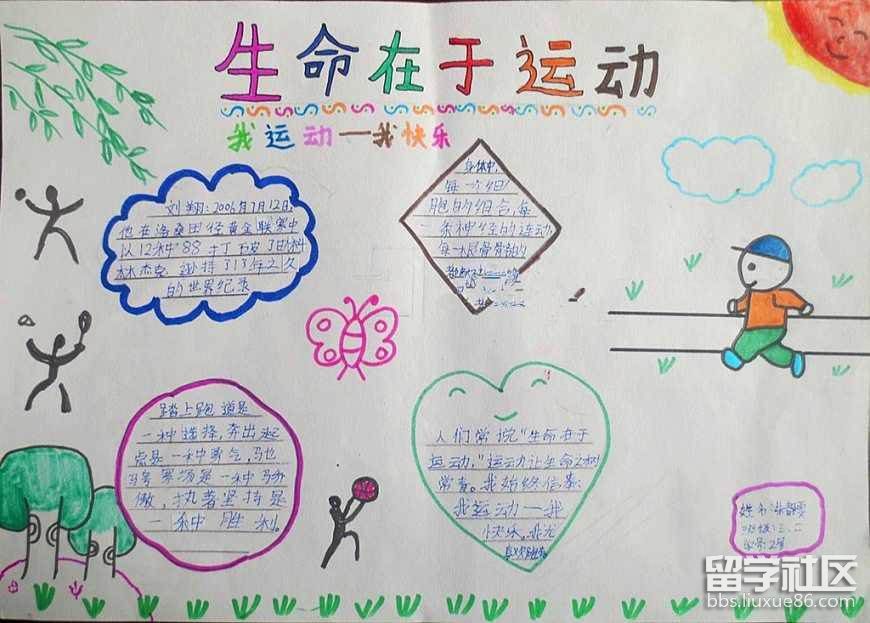 生命在于运动
我运动—我快乐
刘翔:2006年7月12日,
他在洛桑田径黄金联赛中
以12秒88打破了由科
林杰克
13年之久
的世界纪录
身体中,
每一个细
胞的组合,每
一条神经的连动,
每一根骨骼的
踏上跑道是
一种选择,奔出起
点是一种勇气,驰
骋赛场是一种骄
傲,执著坚持是
一种胜利。
人们常说"生命在于
运动,"运动让生命之树
常青。我始终信奉:
我运动—我
快乐。
姓名:
班级:三、二
学号:2号
留学社区
bbs.liuxue86.com